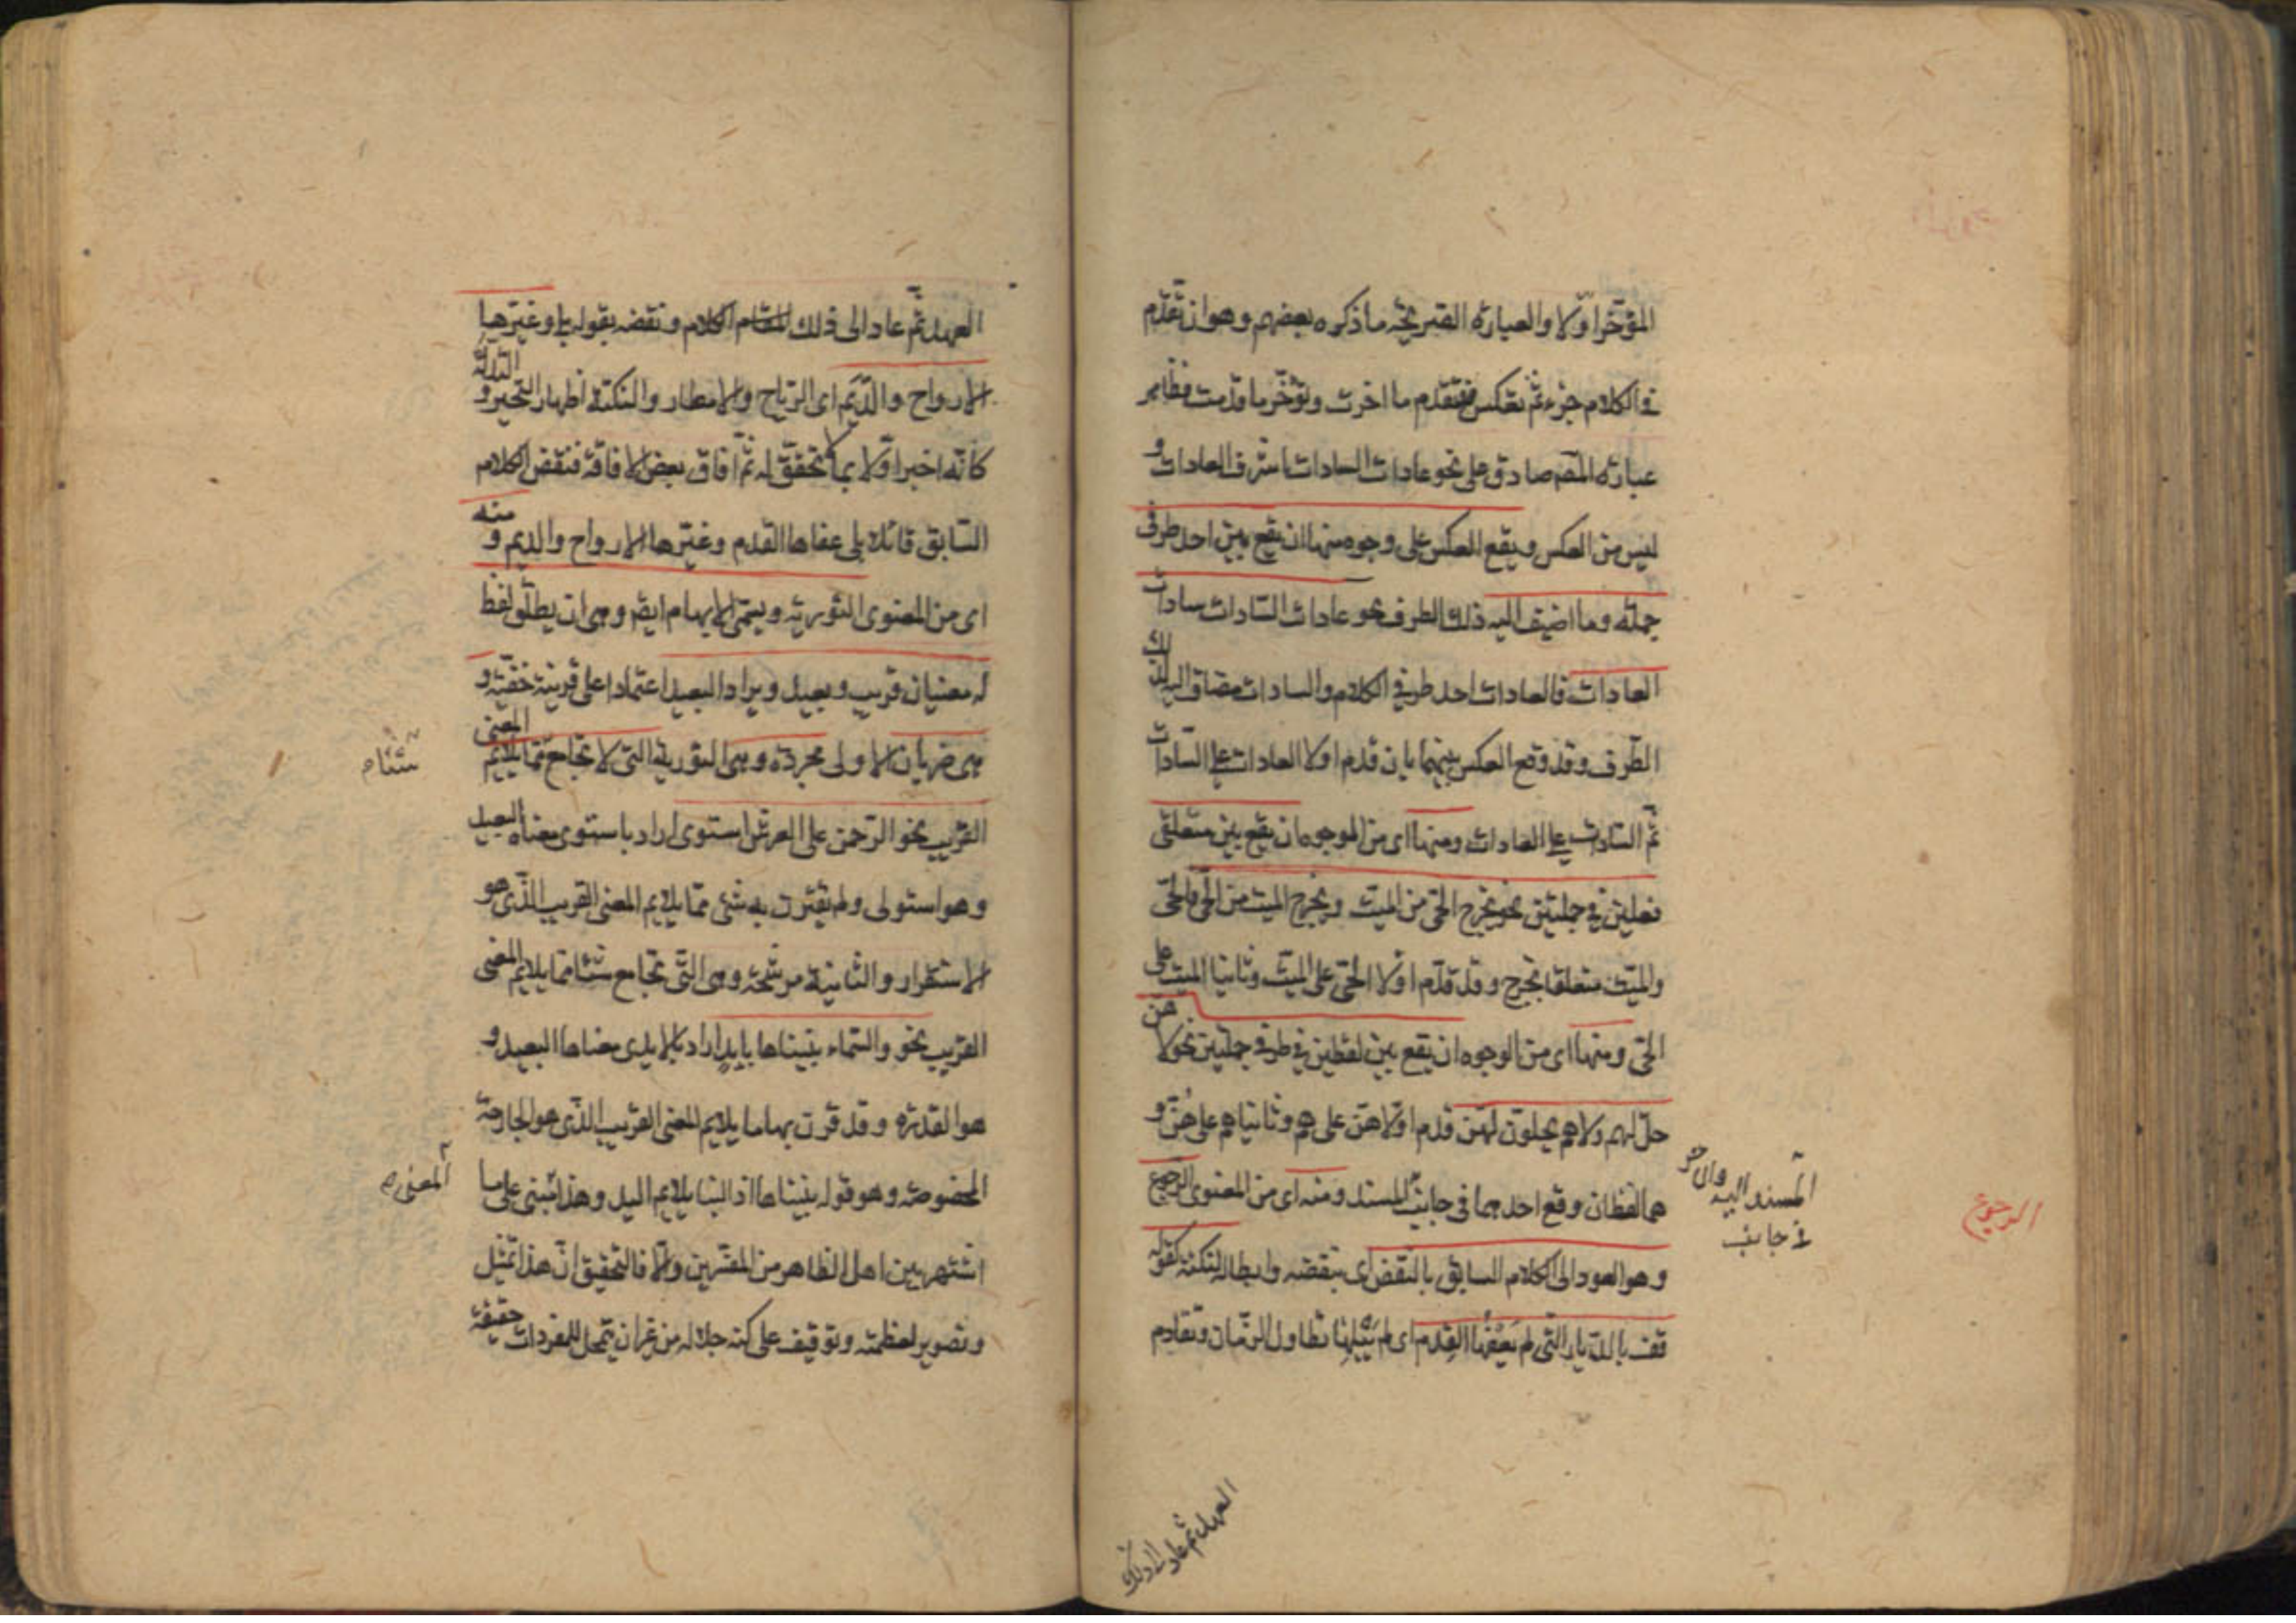 المؤخر اولا والعبارة الصريحة ما ذكره بعضهم وهو ان تقدم
فى الكلام جزء ثم تعكس فتقدم ما اخرت وتؤخر ما قدمت فظاهر
عبارة المصم صادق على نحو عادات السادات اشرف العادات و
ليس من العكس ويقع العكس على وجوه منها ان يقع بين احد طرفى
جملة وما اضيف اليه ذلك الطرف نحو عادات السادات سادات
العادات فالعادات احد طرفى الكلام والسادات مضاف اليه لذلك
الطرف وقد وقع العكس بينهما بان قدم اولا العادات على السادات
ثم السادات على العادات ومنها اى من الوجوه ان يقع بين متعلقى
فعلين فى جملتين نحو يخرج الحى من الميت ويخرج الميت من الحى فالحى
والميت متعلقا يخرج وقد قدم اولا الحى على الميت وثانيا الميت على
الحى ومنها اى من الوجوه ان يقع بين لفظين فى طرفى جملتين نحو لا هن
حل لهم ولا هم يحلون لهن قدم اولا هن على هم وثانيا هم على هن و
هما لفظان وقع احدهما فى جانب المسند ومنه اى من المعنوى الرجوع
المسند اليه والاخر
فى جانب
الرجوع
وهو العود الى الكلام السابق بالنقض اى بنقضه وابطاله لنكتة كقوله
قف بالديار التى لم يعفها القدم اى لم يبلها تطاول الزمان وتقادم
العهد ثم عاد الى ذلك
العهد ثم عاد الى ذلك الكلام ونقضه بقوله بلى وغيرها
الارواح والديم اى الرياح والامطار والنكتة اظهار التحير و التدله
كانه اخبر اولا بما لا تحقق له ثم افاق بعض الافاقة فنقض الكلام
السابق قائلا بلى عفاها القدم وغيرها الارواح والديم و منه
اى من المعنوى التورية ويسمى الايهام ايضا وهى ان يطلق لفظ
له معنيان قريب وبعيد ويراد البعيد اعتمادا على قرينة خفية و
هى ضربان الاولى مجردة وهى التورية التى لا تجامع مما يلايم المعنى
شيئا م
القريب نحو الرحمن على العرش استوى اراد باستوى معناه البعيد
وهو استولى ولم يقترن به شئ مما يلايم المعنى القريب الذى هو
الاستقرار والثانية مرشحة وهى التى تجامع شيئا مما يلايم المعنى
القريب نحو والسماء بنيناها بايد اراد بالايدى معناها البعيد و
هو القدرة وقد قرن بها ما يلايم المعنى القريب الذى هو الجارحة
المخصوصة وهو قوله بنيناها اذ البنا يلايم اليد وهذا مبنى على ما
اشتهر بين اهل الظاهر من المفسرين والا فالتحقيق ان هذا تمثيل
وتصوير لعظمته وتوقيف على كنه جلاله من غير ان يتمحل للمفردات حقيقة